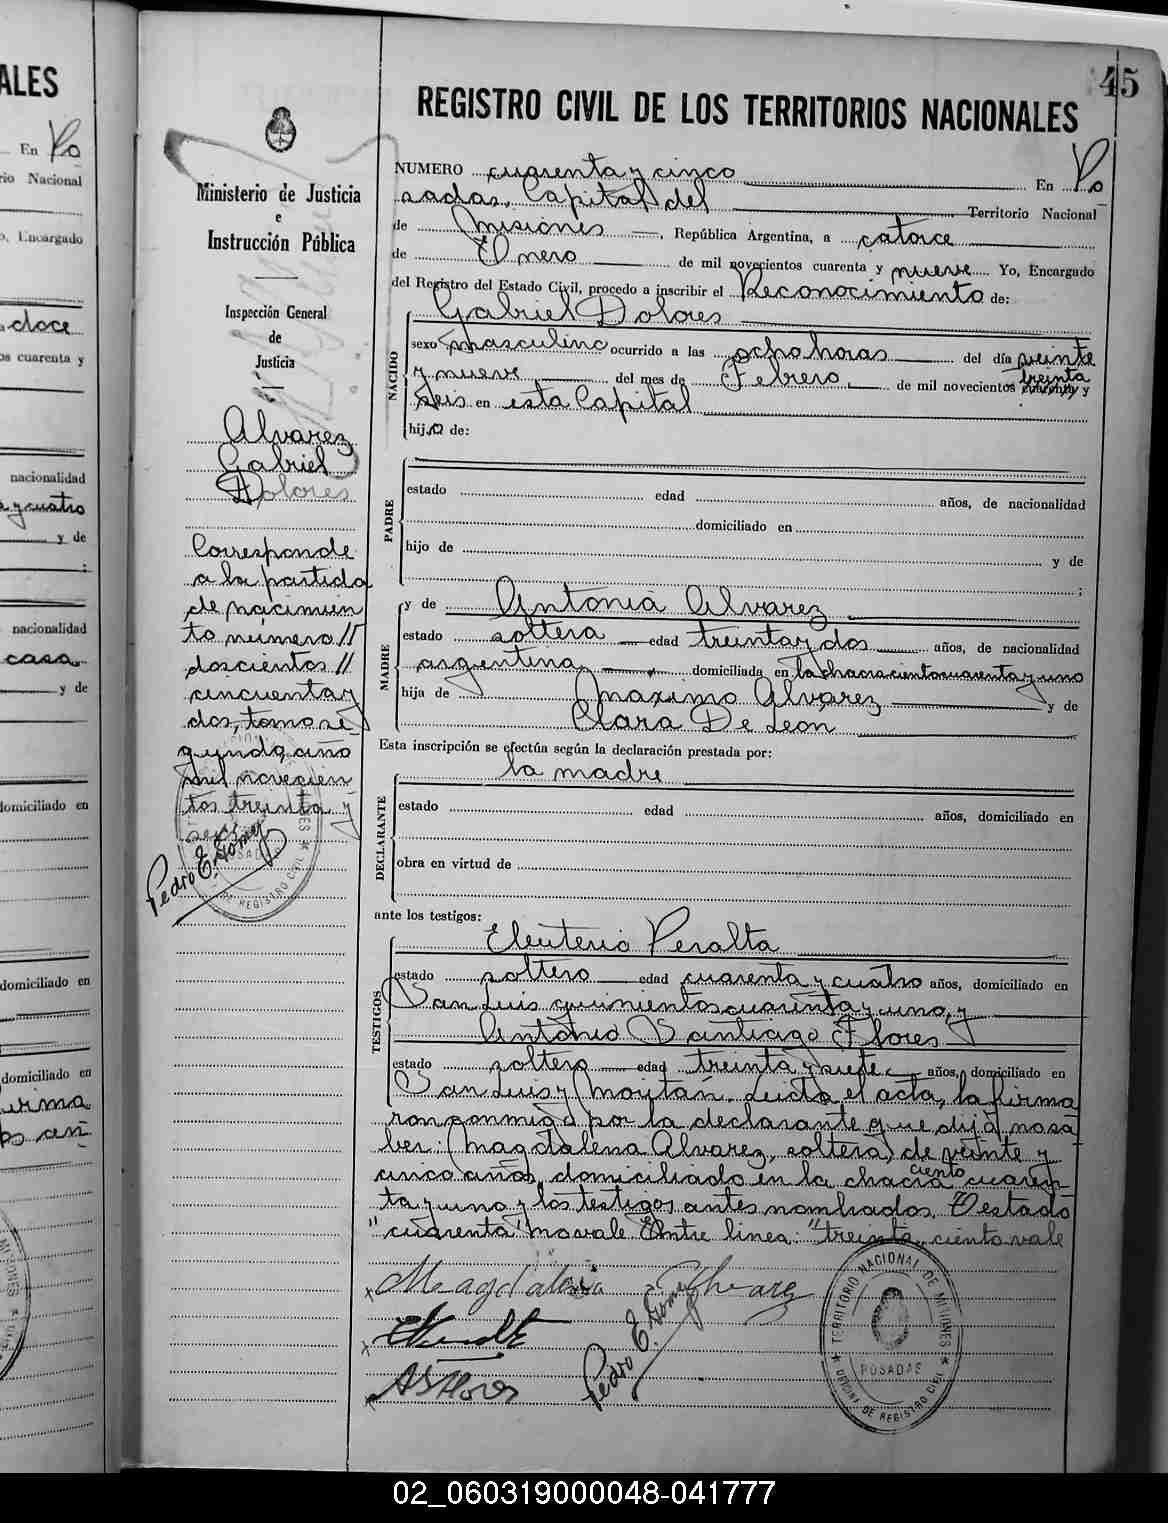 ALES
En Po
rio Nacional
o, Encargado
doce
os cuarenta y
nacionalidad
a y cuatro
y de
;
nacionalidad
casa
y de
domiciliado en
domiciliado en
domiciliado en
irma
os an
45
REGISTRO CIVIL DE LOS TERRITORIOS NACIONALES
Ministerio de Justicia
e
Instrucción Pública
Inspección General
de
Justicia
Alvarez
Gabriel
Dolores
Corresponde
a la partida
de nacimien
to número //
doscientos //
cincuenta y
dos, tomo se
gundo, año
mil novecien
tos treinta y
seis
Pedro E. Gomez
NUMERO cuarenta y cinco En Po
sadas, Capital del Territorio Nacional
de Misiones, República Argentina, a catorce
de Enero de mil novecientos cuarenta y nueve Yo, Encargado
del Registro del Estado Civil, procedo a inscribir el Reconocimiento de:
Gabriel Dolores
NACIDO
sexo masculino ocurrido a las ocho horas del día veinte
y nueve del mes de Febrero de mil novecientos treinta cuarenta y
seis en esta Capital
hijo de:
PADRE
estado edad años, de nacionalidad
domiciliado en
hijo de y de
;
MADRE
y de Antonia Alvarez
estado soltera edad treinta y dos años, de nacionalidad
argentina domiciliada en la chacra ciento cuarenta y uno
hija de Maximo Alvarez y de
Clara De Leon
Esta inscripción se efectúa según la declaración prestada por:
la madre
DECLARANTE
estado edad años, domiciliado en
obra en virtud de
ante los testigos:
TESTIGOS
Eleuterio Peralta
estado soltero edad cuarenta y cuatro años, domiciliado en
San Luis quinientos cuarenta y uno, y
Antonio Santiago Flores
estado soltero edad treinta y siete años, domiciliado en
San Luis y Moritán. Leida el acta, la firma
ron conmigo por la declarante que dijo no sa
ber: Magdalena Alvarez, soltera, de veinte y
cinco años, domiciliado en la chacra ciento cuaren
ta y uno y los testigos antes nombrados. Testado
"cuarenta" no vale Entre linea: "treinta, ciento vale
Magdalena Alvarez
A S Flores
Pedro E. Gomez
TERRITORIO NACIONAL DE MISIONES
POSADAS
OFICINA DE REGISTRO CIVIL
02_060319000048-041777